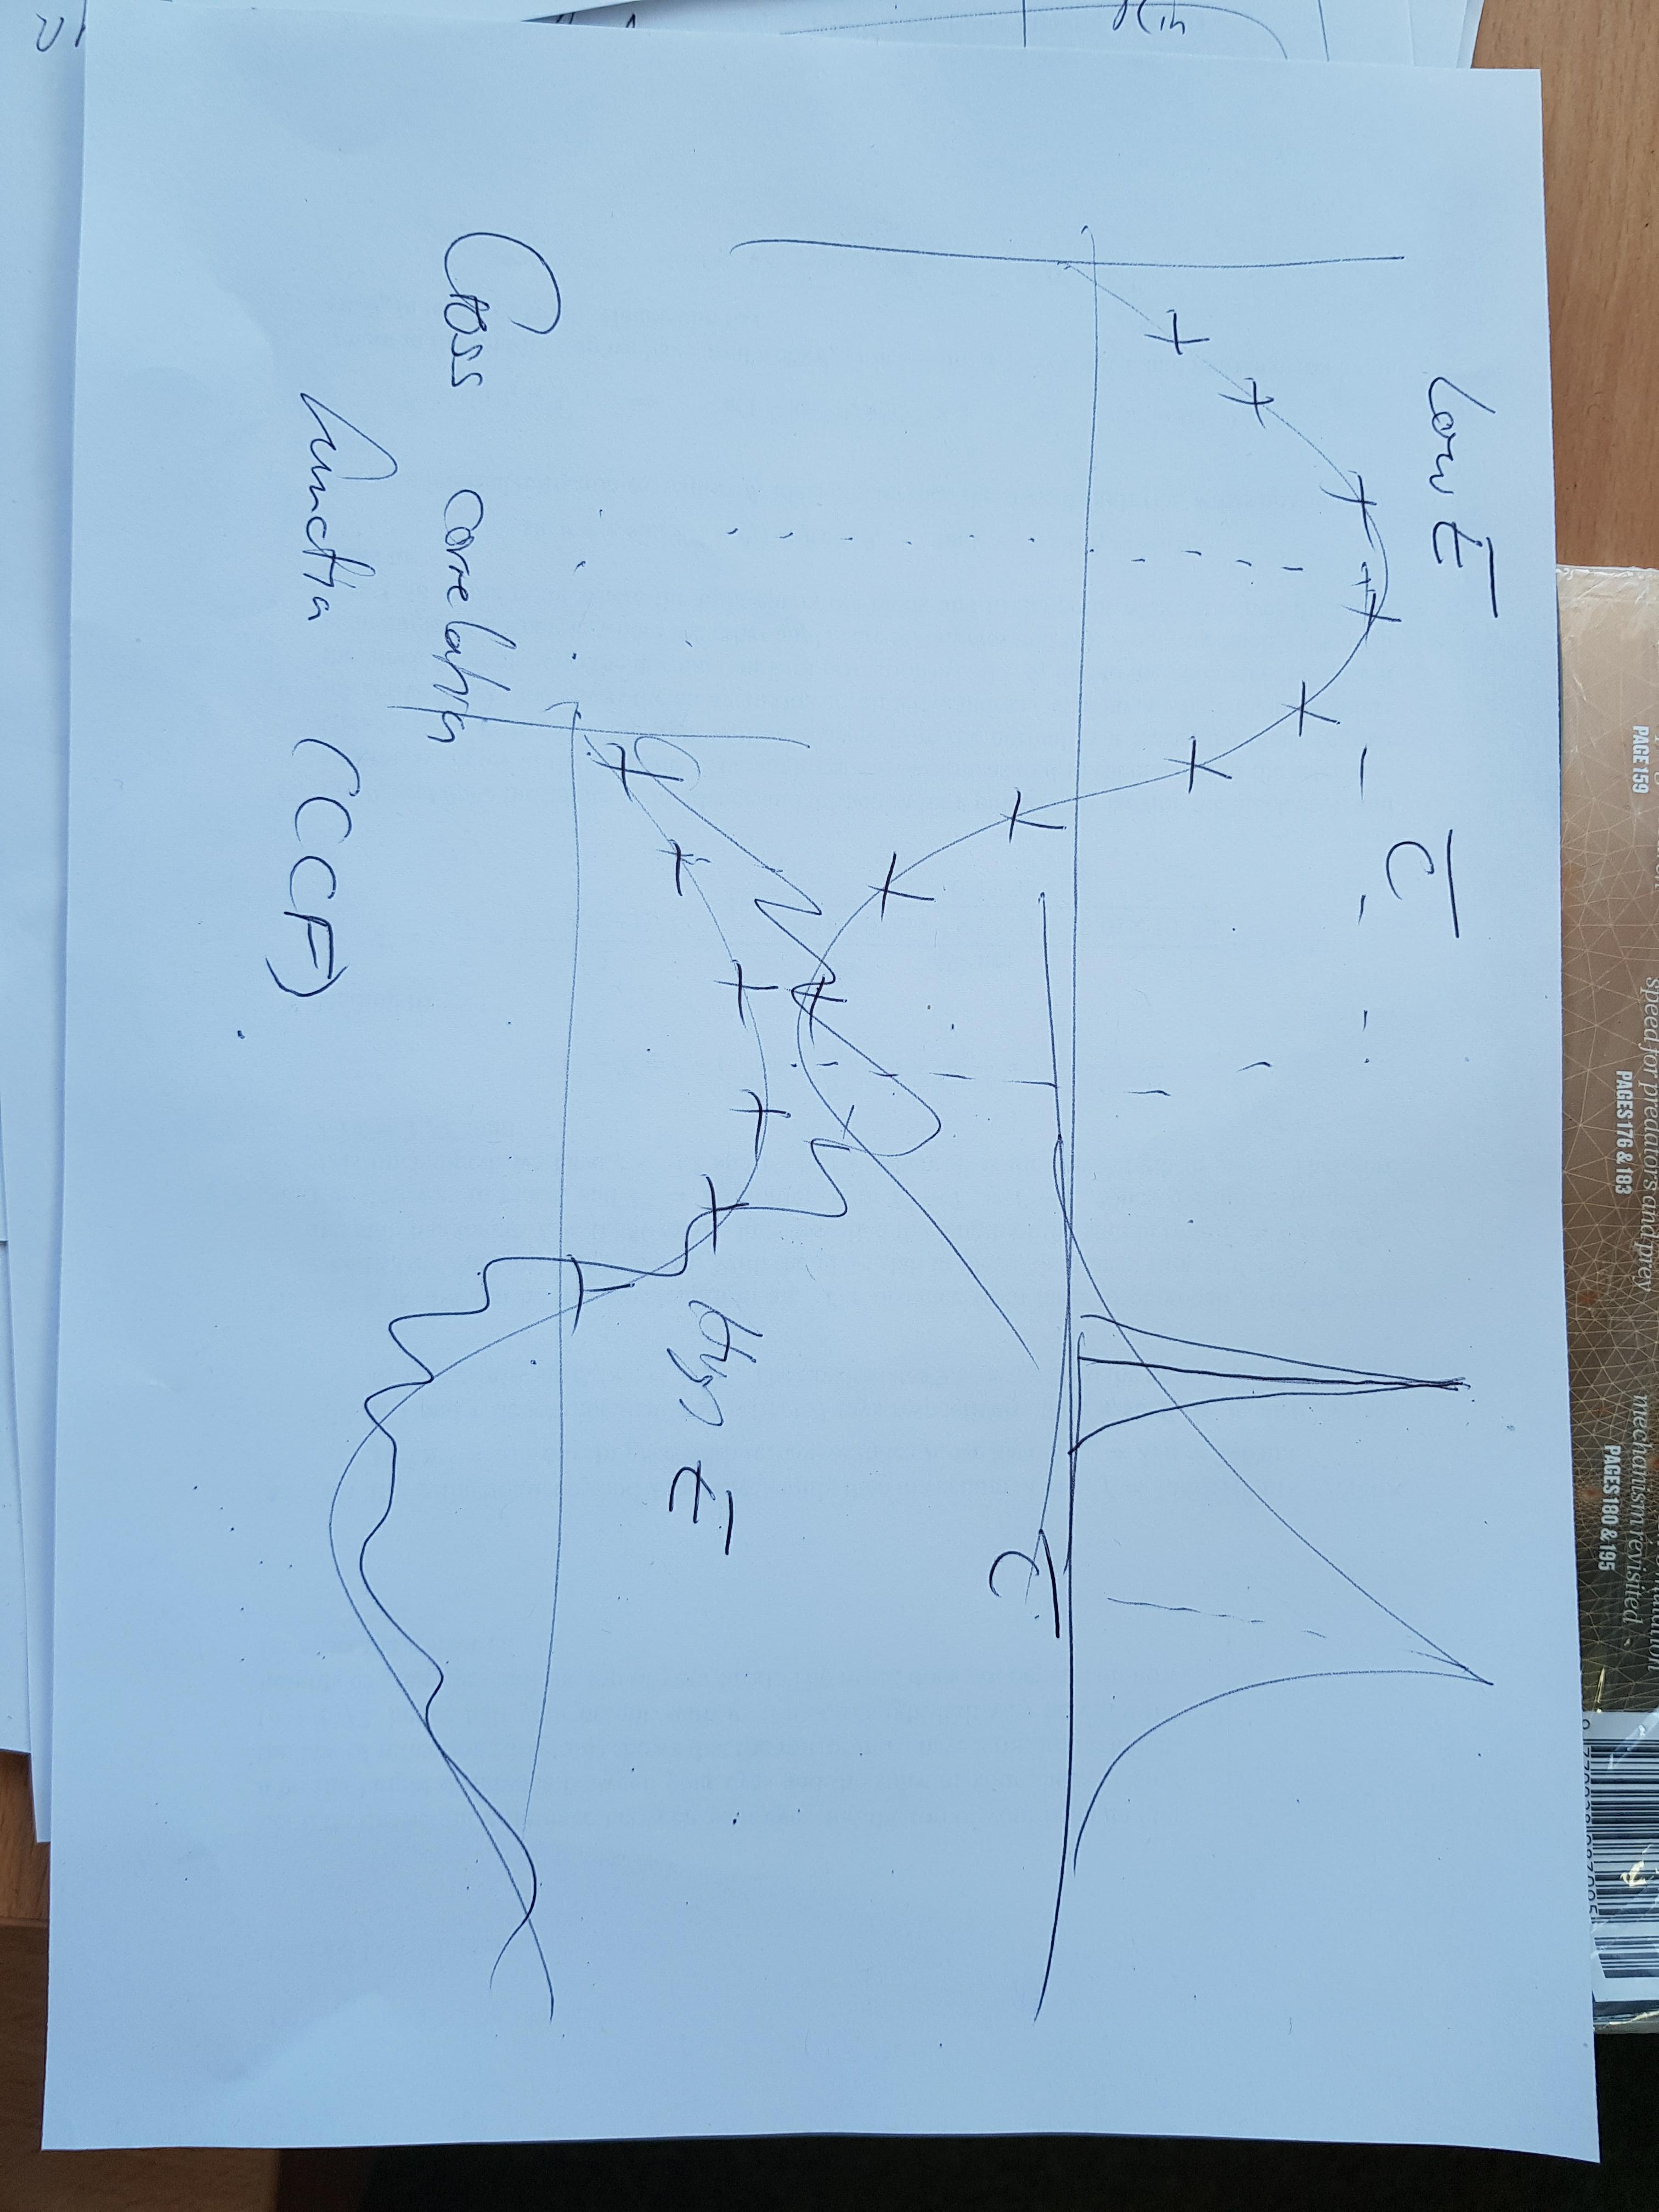 PAGE 159
speed for predators and prey
PAGES 176 & 183
mechanism revisited
PAGES 180 & 195
Low E
C
C
E
Cross correlation
function (CCF)